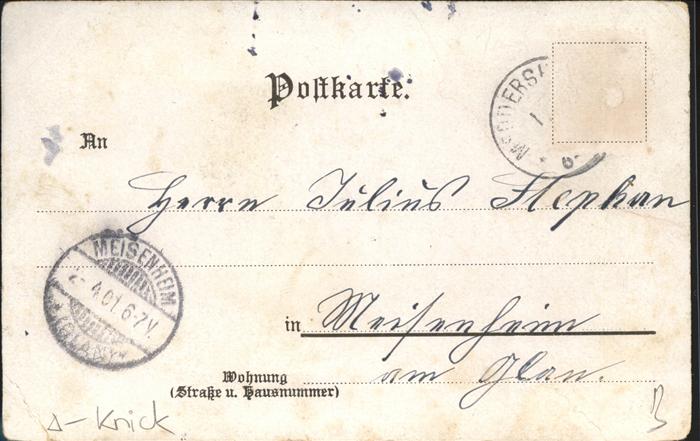 Postkarte.
MEDDERSH
1
6-
An
Herrn Julius Stephan
MEISENHEIM
2 4.01.6-7V.
* (GLAN) *
in Meisenheim
am Glan.
Wohnung
(Straße u. Hausnummer)
Δ-Knick
B